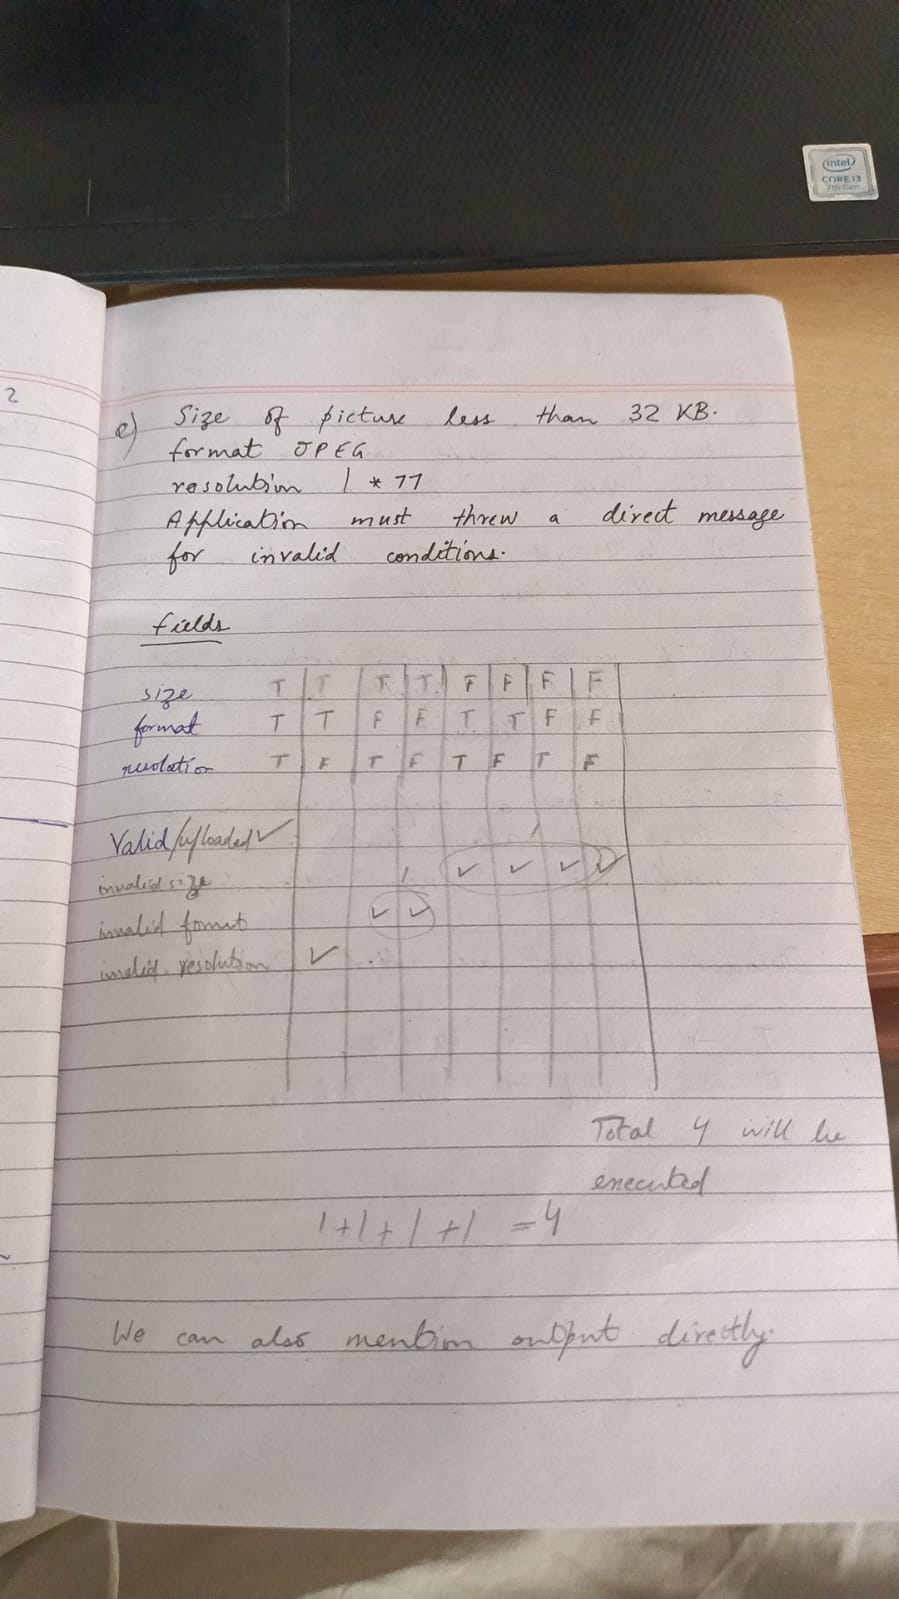 intel
CORE i3
7th Gen
2
e) Size of picture less than 32 KB.
format JPEG
resolution 1 * 77
Application must threw a direct message
for invalid conditions.
fields
size T T T T F F F F
format T T F F T T F F
resolution T F T F T F T F
Valid/uploaded ✓
invalid size ✓ ✓ ✓ ✓
invalid format ✓ ✓
invalid resolution ✓
Total 4 will be
executed
1+1+1+1 = 4
We can also mention output directly.